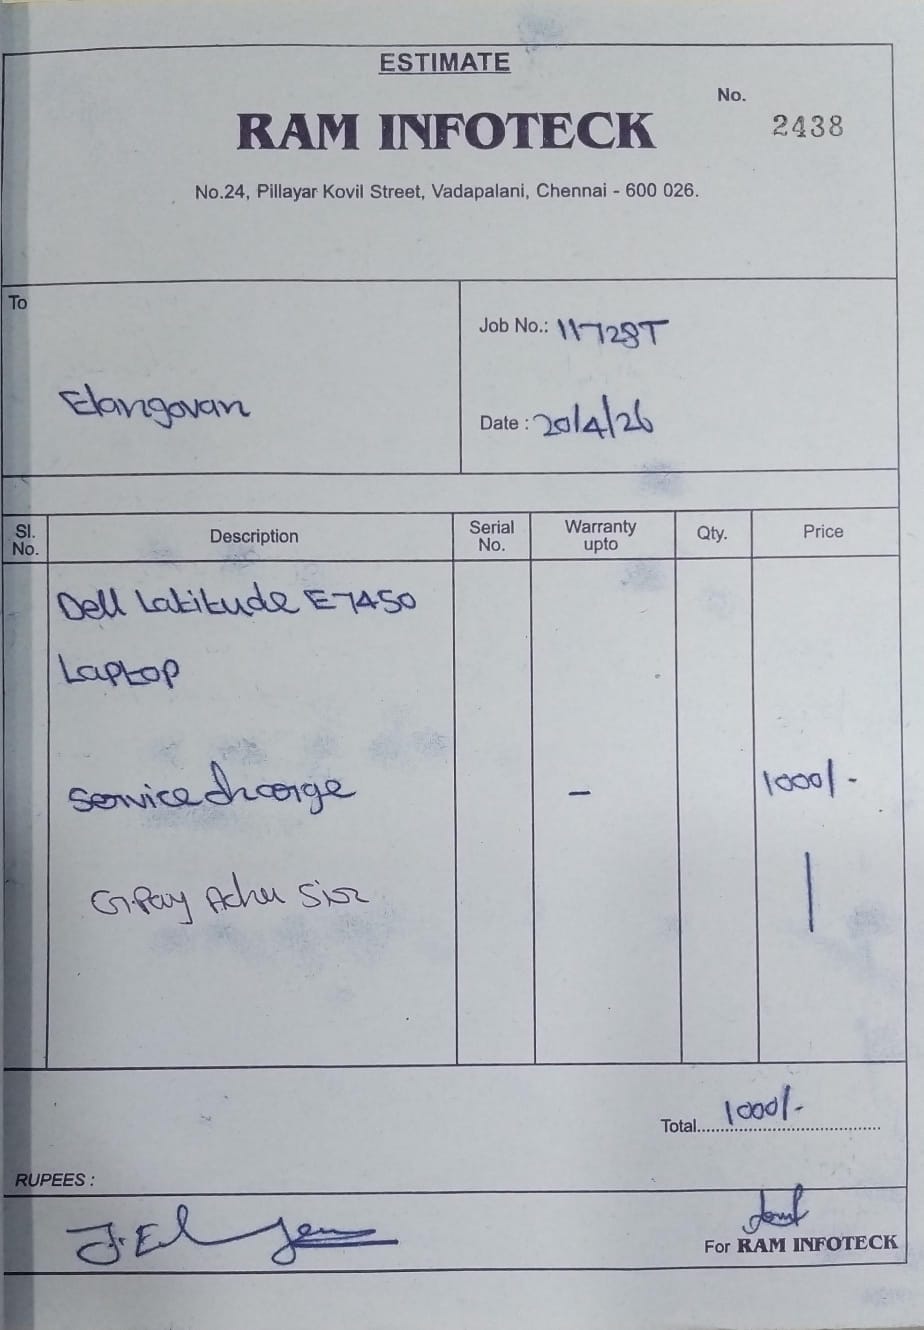 ESTIMATE
No.
2438
RAM INFOTECK
No.24, Pillayar Kovil Street, Vadapalani, Chennai - 600 026.
To
Elangovan
Job No.: 11728T
Date : 20/4/26
Sl. No. Description Serial No. Warranty upto Qty. Price
Dell Latitude E7450
Laptop
Service charge - 1000/-
GPay Sir
Total 1000/-
RUPEES :
J. El
For RAM INFOTECK